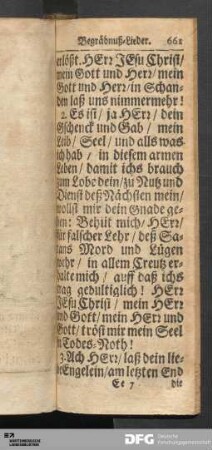 Begräbnuß-Lieder. 661
erlößt. HErr JEsu Christ/
mein Gott und Herr/ mein
Gott und Herr/ in Schan-
den laß uns nimmermehr!
2. Es ist/ ja HErr/ dein
Gschenck und Gab/ mein
Leib/ Seel/ und alls was
ich hab/ in diesem armen
Leben/ damit ichs brauch
zum Lobe dein/ zu Nutz und
Dienst deß Nächsten mein/
wollst mir dein Gnade ge-
ben: Behüt mich/ HErr/
für falscher Lehr/ deß Sa-
tans Mord und Lügen
wehr/ in allem Creutz er-
halte mich/ auff daß ichs
trag gedultiglich! HErr
JEsu Christ/ mein HErr
und Gott/ mein HErr und
Gott/ tröst mir mein Seel
in Todes-Noth!
3. Ach HErr/ laß dein lie-
be Engelein/ am letzten End
Ee 7 die
DFG Deutsche
Forschungsgemeinschaft